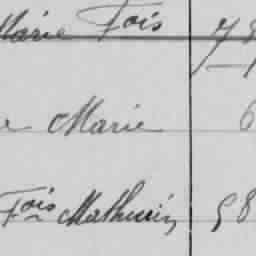 Marie Fois 78
e Marie 6
Fois Mathurin 58